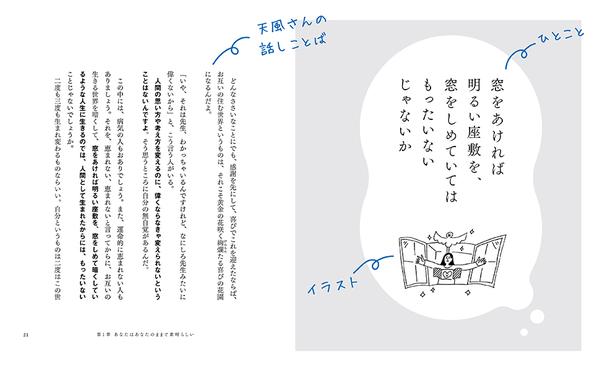 ひとこと
窓をあければ
明るい座敷を、
窓をしめていては
もったいない
じゃないか
イラスト
天風さんの
話しことば
どんなささいなことにでも、感謝を先にして、喜びでこれを迎えたならば、
お互いの住む世界というものは、それこそ黄金の花咲く絢爛たる喜びの花園
になるんだよ。
「いや、それは先生、わかっちゃいるんですけれど、なにしろ先生みたいに
偉くないから」と、こう言う人がいる。
人間の思い方や考え方を変えるのに、偉くならなきゃ変えられないという
ことはないんですよ。そう思うところに自分の無自覚があるんだ。
この中には、病気の人もおありでしょう。また、運命的に恵まれない人も
ありましょう。それを、恵まれない、恵まれないと言ってからに、お互いの
生きる世界を暗くして、窓をあければ明るい座敷を、窓をしめて暗くしてい
るような人生に生きるのでは、人間として生まれたからには、もったいない
ことじゃないでしょうか。
二度も三度も生まれ変わるものならいい。自分というものは二度はこの世
21
第1章 あなたはあなたのままで素晴らしい